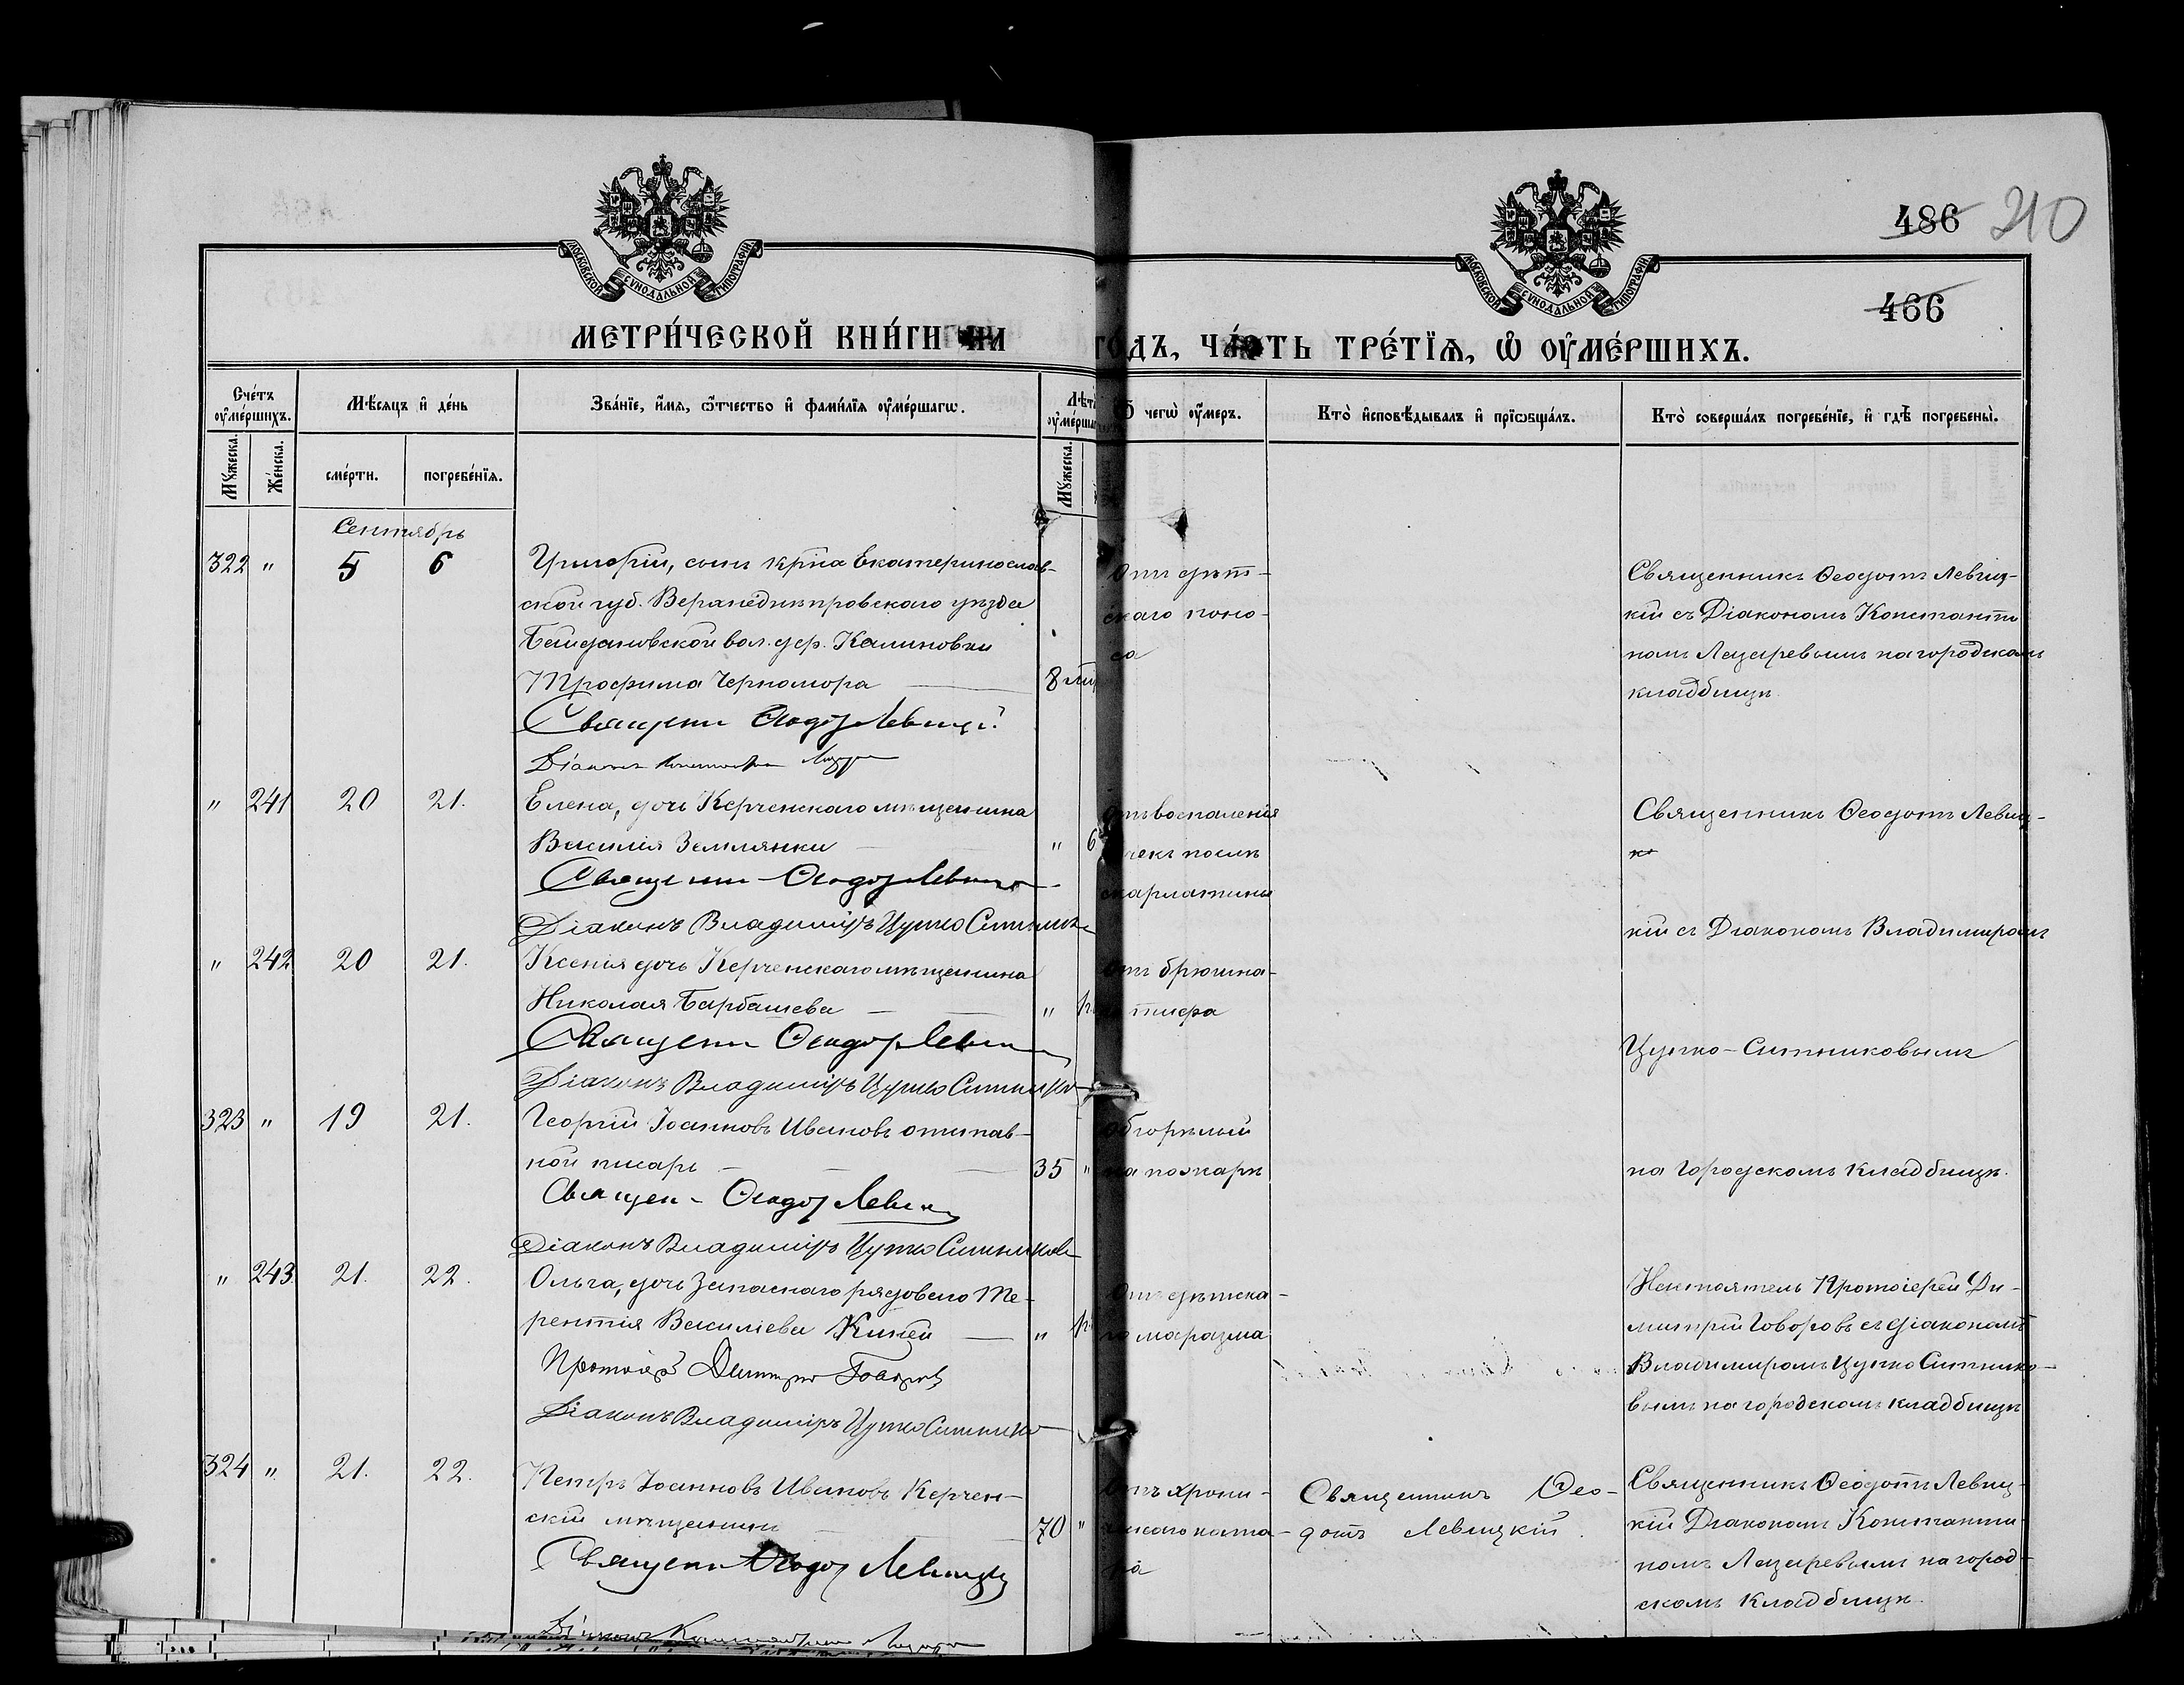 486 210
466
МОСКОВСКОЙ СѴНОДАЛЬНОЙ ТИПОГРАФІИ
МОСКОВСКОЙ СѴНОДАЛЬНОЙ ТИПОГРАФІИ
МЕТРИ́ЧЕСКОЙ КНИ́ГИ НА
ГО́ДЪ, ЧА́СТЬ ТРЕ́ТЇѦ, Ѡ҆ ОУ҆МЕ́РШИХЪ.
Сче́тъ оу҆ме́ршихъ.
Мꙋ́жеска.
Же́нска.
Мѣ́сяцъ и҆ де́нь
сме́рти.
погребе́нїѧ.
Зва́нїе, и҆́мѧ, ѻ҆́тчество и҆ фами́лїѧ оу҆ме́ршагѡ.
Лѣта̀ оу҆ме́рша
Мꙋ́жеска.
Ѿ чегѡ̀ оу҆́меръ.
Кто̀ и҆сповѣ́дывалъ и҆ прїѡбща́лъ.
Кто̀ соверша́лъ погребе́нїе, и҆ гдѣ̀ погребены̀.
Сентябрь
322 " 5 6
Григорій, сынъ кр̃на Екатеринослав-
ской губ. Верхнеднѣпровскаго уѣзда
Байдаковской вол. дер. Калиновки
Трофима Черномора 8
Священ Ѳеодот Левицкі
Діаконъ Константин Лазарев
Отъ дѣт-
скаго поно-
са
Священникъ Ѳеодотъ Левиц-
кій съ Діакономъ Константи
номъ Лазаревымъ на городскомъ
кладбищѣ.
" 241 20 21.
Елена, дочь Керченскаго мѣщанина
Василія Землянки " 6
Священн Ѳеодот Левицк
Діаконъ Владиміръ Цупко Ситников
Отъ воспаленія
почекъ послѣ
скарлатины
Священникъ Ѳеодотъ Левиц-
кій съ Діакономъ Владимиромъ
" 242 20 21.
Ксенія дочь Керченскаго мѣщанина
Николая Барбашева "
Священн Ѳеодот Левиц
Діаконъ Владиміръ Цупко Ситников
Отъ брюшна-
го тифа
Цупко-Ситниковымъ
323 " 19 21.
Георгій Іоанновъ Ивановъ отстав-
ной писарь 35 "
Священ Ѳеодот Левиц
Діаконъ Владиміръ Цупко Ситников
Обгорѣлый
на пожарѣ
на городскомъ кладбищѣ.
" 243. 21. 22.
Ольга, дочь запаснаго рядоваго Те-
рентія Василіева Кинеи "
Протоіер Димитрі Говоров
Діаконъ Владиміръ Цупко Ситников
Отъ дѣтска-
го маразма
Настоятель Протоіерей Ди-
митрій Говоровъ съ діакономъ
Владимиромъ Цупко Ситнико-
вымъ на городскомъ кладбищѣ
324 " 21. 22.
Петръ Іоанновъ Ивановъ Керчен-
скій мѣщанинъ 70 "
Священ Ѳеодот Левицкі
Діаконъ Константин Лазарев
Отъ хрони-
ческаго ката-
ра
Священникъ Ѳео-
дотъ Левицкій.
Священникъ Ѳеодотъ Левиц-
кій Діакономъ Константи-
номъ Лазаревымъ на город-
скомъ кладбищѣ.